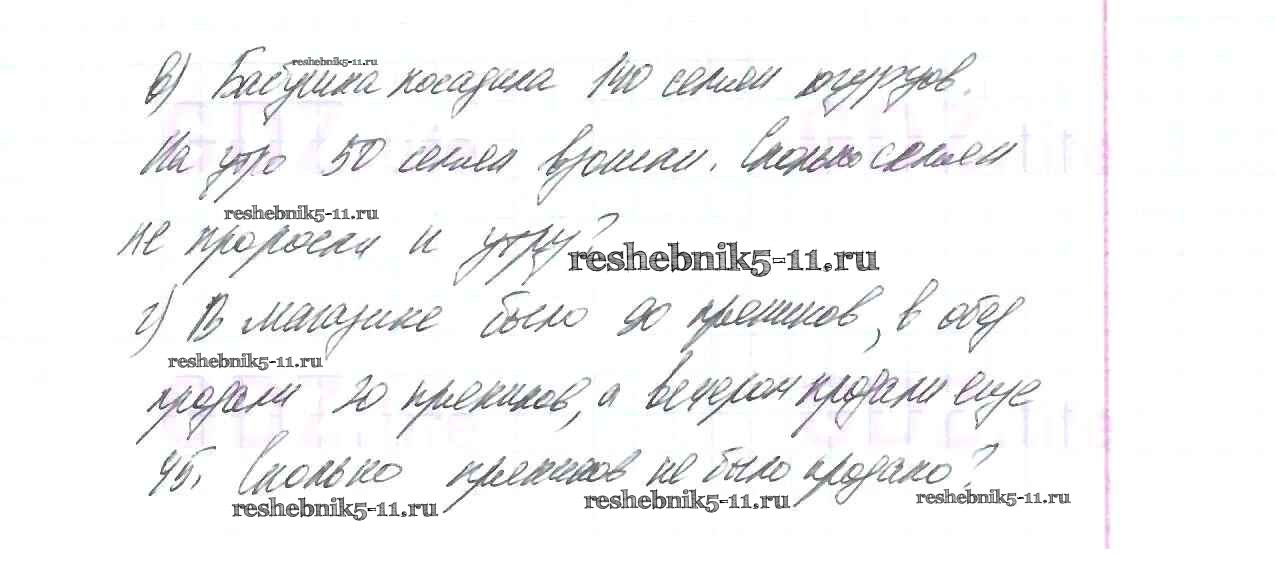 reshebnik5-11.ru
в) Бабушка посадила 140 семян огурцов.
На утро 50 семян взошли. Сколько семян
reshebnik5-11.ru
не проросли к утру?
reshebnik5-11.ru
г) В магазине было 90 пряников, в обед
reshebnik5-11.ru
продали 20 пряников, а вечером продали еще
45. Сколько пряников не было продано?
reshebnik5-11.ru reshebnik5-11.ru reshebnik5-11.ru